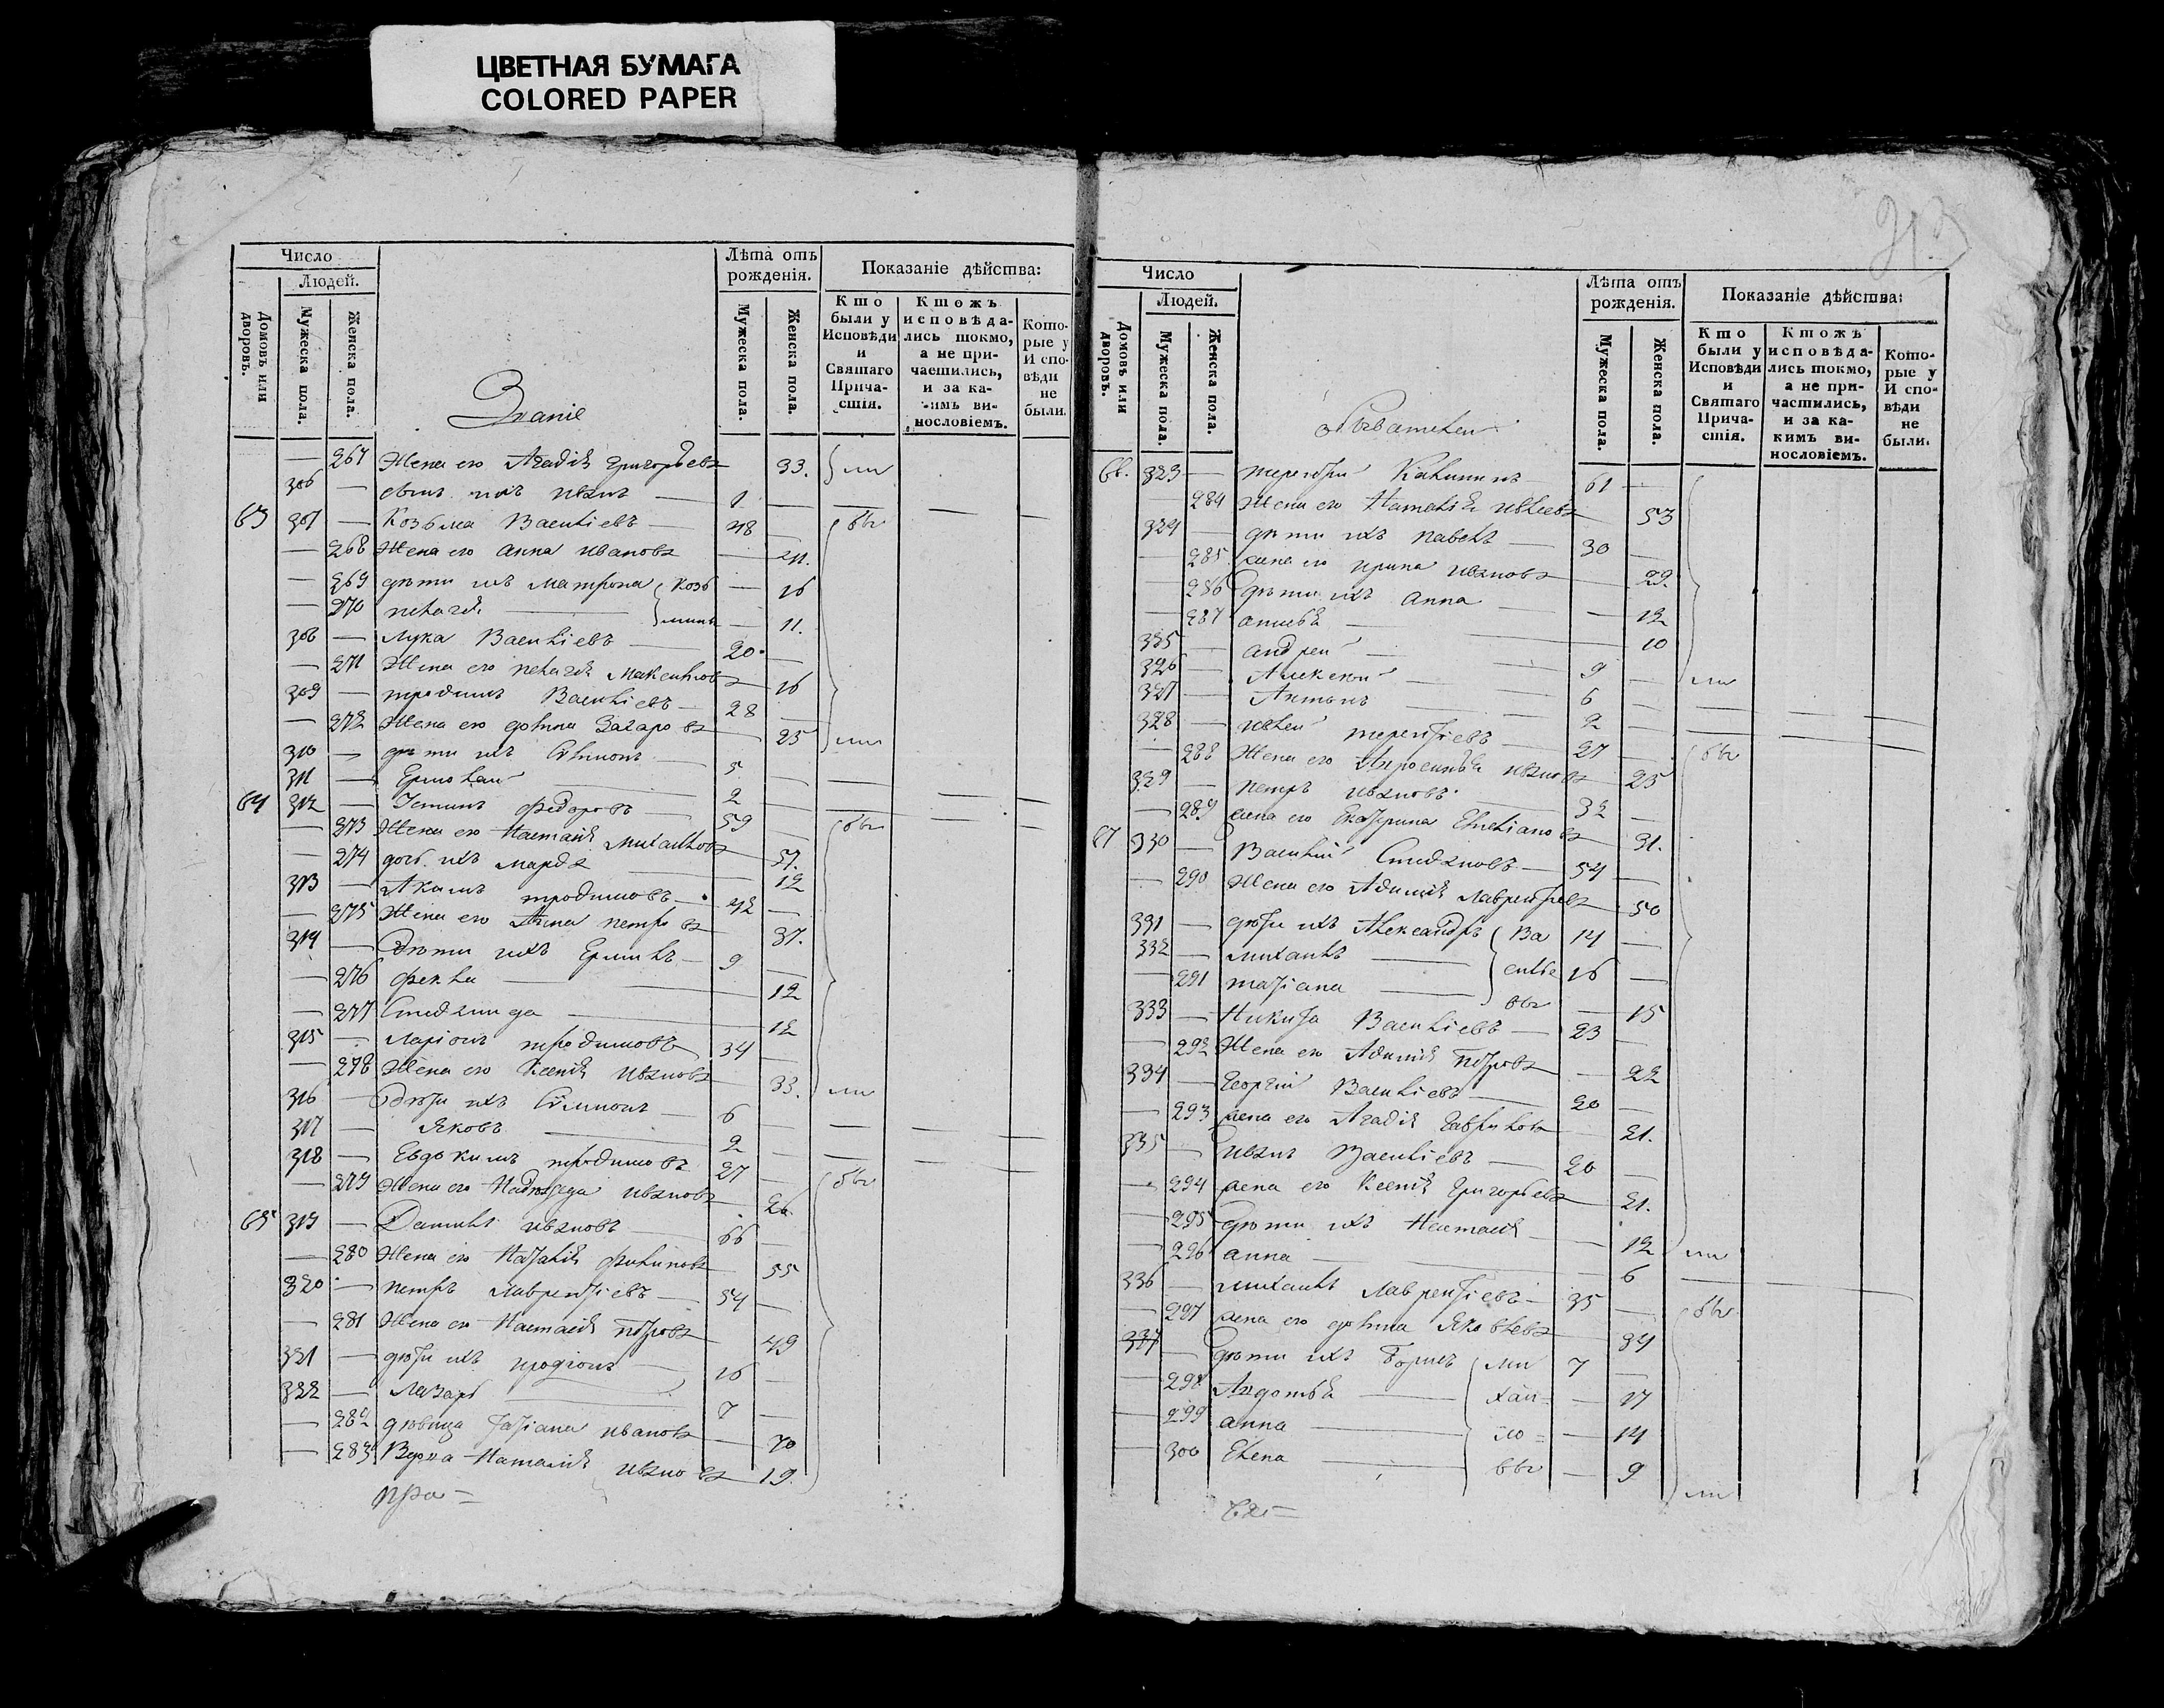 ЦВЕТНАЯ БУМАГА
COLORED PAPER
Число
Людей.
Домовъ или дворовъ.
Мужеска пола.
Женска пола.
Званіе
Лѣта отъ рожденія.
Мужеска пола.
Женска пола.
Показаніе дѣйства:
Кто были у Исповѣди и Святаго Прича-стія.
Ктожъ исповѣда-лись токмо, а не при-частились, и за ка-кимъ ви-нословіемъ.
Кото-рые у Испо-вѣди не были.
— 267 Жена его Агафія Григорьева — 33. ли
306 — сынъ ихъ иванъ — 1
63 307 — Козьма Васильевъ — 48 бы
— 268 Жена его Анна иванова — 41.
— 269 дѣти ихъ матрона Козь — 16
— 270 пелагея — мины — 11.
308 — лука Васильевъ — 20
— 271 Жена его пелагея — 16
309 — трофимъ Васильевъ — 28
— 272 Жена его Захарова — 25 ли
310 — дѣти ихъ — 5
311 — Ермолай — 2
64 312 — Устинъ федоровъ — 59 бы
— 273 Жена его Настасія Михайлова — 57.
— 274 дочь ихъ марфа — 12
313 — Акимъ трофимовъ — 42
— 275 Жена его Анна петрова — 37.
314 — дѣти ихъ Ермилъ — 9
— 276 фекла — 12
— 277 Степанида — 12
315 — Ларіонъ трофимовъ 34
— 278 Жена его Ксенія иванова — 33. ли
316 — дѣти ихъ — 6
317 — Яковъ — 2
318 — Евдокимъ трофимовъ 27 бы
— 279 Жена его Надежда иванова — 26
65 319 — Данилъ ивановъ — 66
— 280 Жена его Наталія филипова — 55
320 — петръ лаврентіевъ — 54
— 281 Жена его Настасія петрова — 49
321 — дѣти ихъ иродіонъ — 16
322 — Лазарь — 7
— 282 дѣвица татіана иванова — 70
— 283 Вдова Наталія иванова — 19.
Число
Людей.
Домовъ или дворовъ.
Мужеска пола.
Женска пола.
обывателей
Лѣта отъ рожденія.
Мужеска пола.
Женска пола.
Показаніе дѣйства:
Кто были у Исповѣди и Святаго Прича-стія.
Ктожъ исповѣда-лись токмо, а не при-частились, и за ка-кимъ ви-нословіемъ.
Кото-рые у Испо-вѣди не были.
66. 323 — терентій Калининъ — 61
— 284 Жена его Наталія — 53
324 — дѣти ихъ павелъ — 30
— 285 жена его ирина иванова — 29.
— 286 дѣти ихъ Анна — 12
— 287 — 10
325 — андрей — 9
326 — Алексей — 6 ли
327 — Антонъ — 2
328 — терентіевъ — 27 бы
— 288 Жена его иванова — 25
329 — петръ ивановъ — 32
— 289 жена его Екатерина Емельянова — 31.
67 330 — Василій Степановъ — 54
— 290 Жена его Афимія Лаврентьева — 50
331 — дѣти ихъ Александръ Ва 14
332 — михаилъ — силье 16
— 291 татіана — вы — 15
333 — Никита Васильевъ — 23
— 292 Жена его Афимія петрова — 22
334 — Георгій Васильевъ — 20
— 293 жена его Агафія Гаврилова — 21.
335 — иванъ Васильевъ — 20
— 294 жена его Ксенія Григорьева — 21.
— 295 дѣти ихъ Настасія — 12 ли
— 296 анна — 6
336 — михаилъ Лаврентіевъ — 35 бы
— 297 жена его Яковлева — 34
337 — дѣти ихъ Борисъ ми 7
— 298 Авдотья — хай — 17
— 299 анна — ло — 14
— 300 Елена — вы — 9 ли